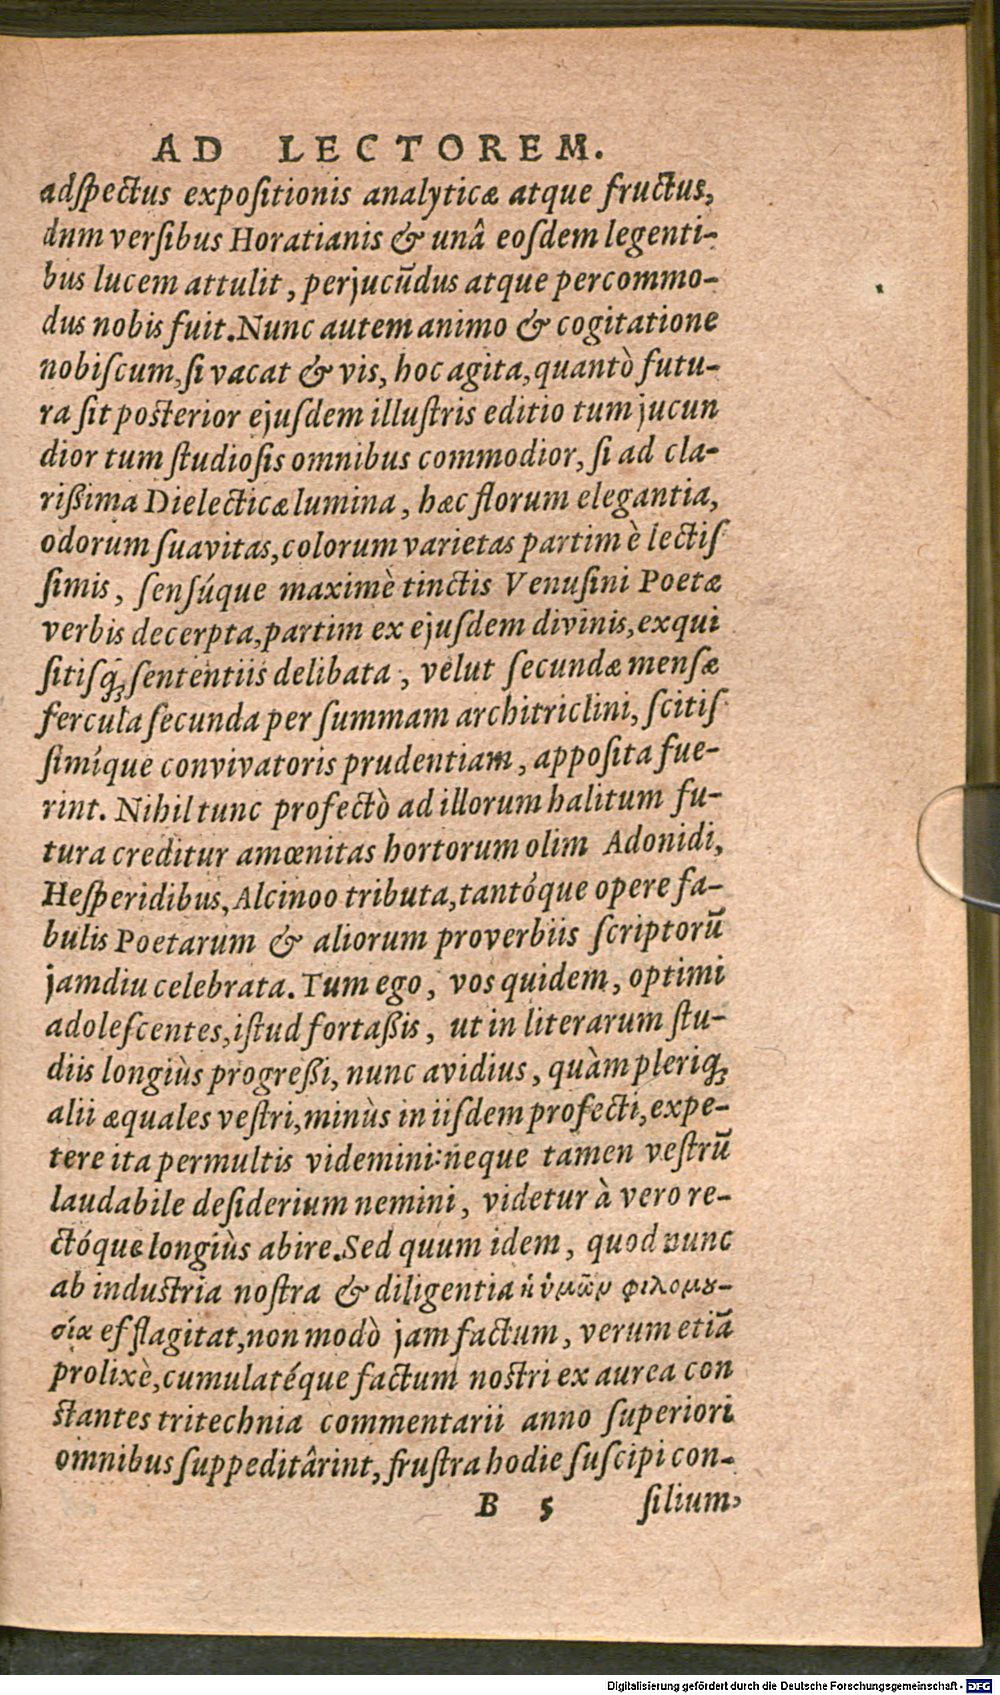 AD LECTOREM.
adſpectus expoſitionis analyticæ atque fructus,
dum verſibus Horatianis & unâ eoſdem legenti-
bus lucem attulit, perjucūdus atque percommo-
dus nobis fuit. Nunc autem animo & cogitatione
nobiſcum, ſi vacat & vis, hoc agita, quantò futu-
ra ſit poſterior ejuſdem illuſtris editio tum jucun
dior tum ſtudioſis omnibus commodior, ſi ad cla-
riſſima Dielecticæ lumina, hæc florum elegantia,
odorum ſuavitas, colorum varietas partim è lectiſ
ſimis, ſenſúque maximè tinctis Venuſini Poetæ
verbis decerpta, partim ex ejuſdem divinis, exqui
ſitiſq́; ſententiis delibata, velut ſecundæ menſæ
fercula ſecunda per ſummam architriclini, ſcitiſ
ſimíque convivatoris prudentiam, appoſita fue-
rint. Nihil tunc profectò ad illorum halitum fu-
tura creditur amœnitas hortorum olim Adonidi,
Heſperidibus, Alcinoo tributa, tantóque opere fa-
bulis Poetarum & aliorum proverbiis ſcriptorū
jamdiu celebrata. Tum ego, vos quidem, optimi
adoleſcentes, iſtud fortaſſis, ut in literarum ſtu-
diis longiùs progreſſi, nunc avidius, quàm pleriq;
alii æquales veſtri, minùs in iiſdem profecti, expe-
tere ita permultis videmini: neque tamen veſtrū
laudabile deſiderium nemini, videtur à vero re-
ctóque longiùs abire. Sed quum idem, quod nunc
ab induſtria noſtra & diligentia ἡ ὑμῶν φιλομου-
σία efflagitat, non modò jam factum, verum etiā
prolixè, cumulatéque factum noſtri ex aurea con
ſtantes tritechnia commentarii anno ſuperiori
omnibus ſuppeditârint, fruſtra hodie ſuſcipi con-
B 5 ſilium,
Digitalisierung gefördert durch die Deutsche Forschungsgemeinschaft - DFG